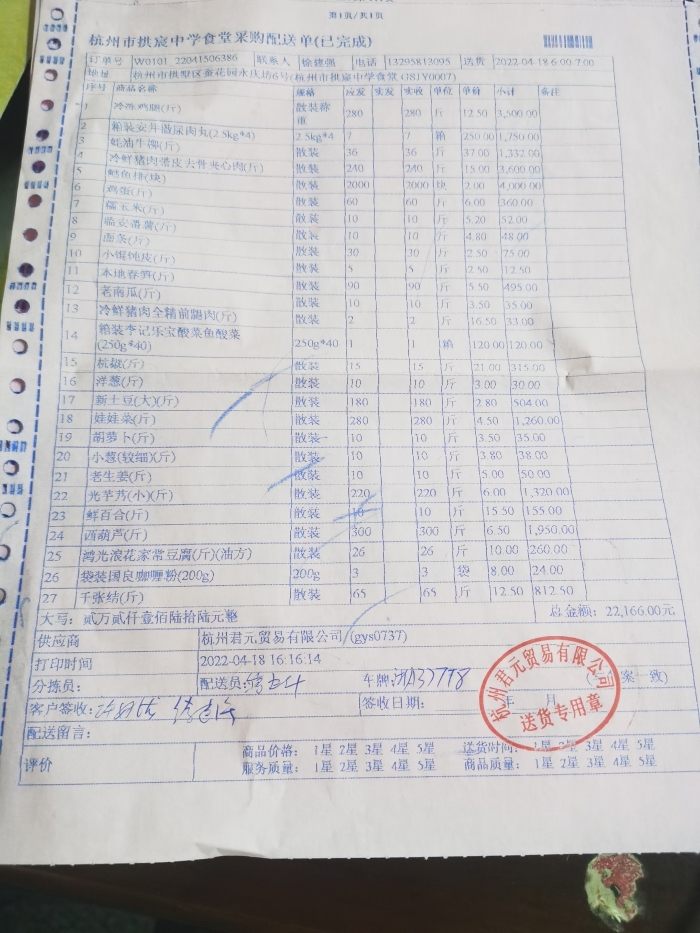 第1页/共1页
杭州市拱宸中学食堂采购配送单(已完成)
订单号 W0101_22041506386 联系人 徐建强 电话 13295813095 送货 2022-04-18 6:00-7:00
地址 杭州市拱墅区蚕花园永庆坊6号(杭州市拱宸中学食堂 GSJY0007)
序号 商品名称 规格 应发 实发 实收 单位 单价 小计 备注
1 冷冻鸡腿(斤) 散装称重 280 280 斤 12.50 3,500.00
2 箱装安井撒尿肉丸(2.5kg*4) 2.5kg*4 7 7 箱 250.00 1,750.00
3 蚝油牛柳(斤) 散装 36 36 斤 37.00 1,332.00
4 冷鲜猪肉带皮去件夹心肉(斤) 散装 240 240 斤 15.00 3,600.00
5 鳕鱼排(块) 散装 2000 2000 块 2.00 4,000.00
6 鸡蛋(斤) 散装 60 60 斤 6.00 360.00
7 糯玉米(斤) 散装 10 10 斤 5.20 52.00
8 临安番薯(斤) 散装 10 10 斤 4.80 48.00
9 面条(斤) 散装 30 30 斤 2.50 75.00
10 小馄饨皮(斤) 散装 5 5 斤 2.50 12.50
11 本地春笋(斤) 散装 90 90 斤 5.50 495.00
12 老南瓜(斤) 散装 10 10 斤 3.50 35.00
13 冷鲜猪肉全精前腿肉(斤) 散装 2 2 斤 16.50 33.00
14 箱装李记乐宝酸菜鱼酸菜(250g*40) 250g*40 1 1 箱 120.00 120.00
15 杭椒(斤) 散装 15 15 斤 21.00 315.00
16 洋葱(斤) 散装 10 10 斤 3.00 30.00
17 新土豆(大)(斤) 散装 180 180 斤 2.80 504.00
18 娃娃菜(斤) 散装 280 280 斤 4.50 1,260.00
19 胡萝卜(斤) 散装 10 10 斤 3.50 35.00
20 小葱(较细)(斤) 散装 10 10 斤 3.80 38.00
21 老生姜(斤) 散装 10 10 斤 5.00 50.00
22 光芋艿(小)(斤) 散装 220 220 斤 6.00 1,320.00
23 鲜百合(斤) 散装 10 10 斤 15.50 155.00
24 西葫芦(斤) 散装 300 300 斤 6.50 1,950.00
25 鸿光浪花家常豆腐(斤)(油方) 散装 26 26 斤 10.00 260.00
26 袋装国良咖喱粉(200g) 200g 3 3 袋 8.00 24.00
27 千张结(斤) 散装 65 65 斤 12.50 812.50
大写: 贰万贰仟壹佰陆拾陆元整 总金额: 22,166.00元
供应商 杭州君元贸易有限公司(gys0737)
打印时间 2022-04-18 16:16:14
分拣员: 配送员: 车牌: 案一致)
客户签收: 签收日期: 年 月
杭州君元贸易有限公司
送货专用章
配送留言:
评价 商品价格: 1星 2星 3星 4星 5星 送货时间: 1星 2星 3星 4星 5星
服务质量: 1星 2星 3星 4星 5星 商品质量: 1星 2星 3星 4星 5星